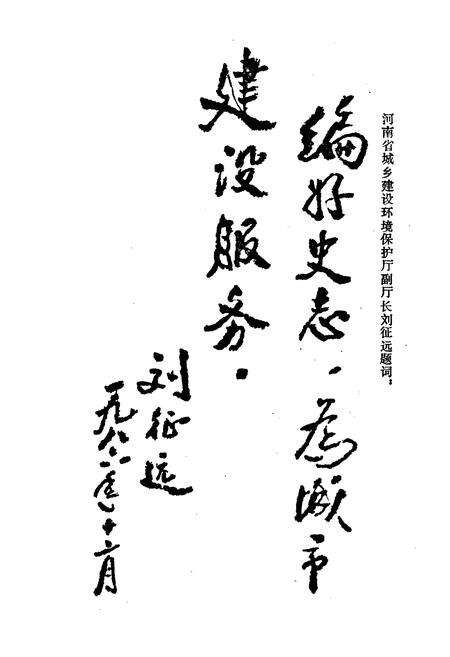 河南省城乡建设环境保护厅副厅长刘征远题词:
编好史志,為城市
建设服务.
刘征远
一九八六年十二月